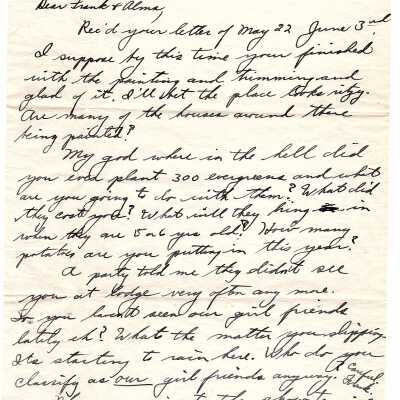 Dear Frank & Alma,
Rec'd your letter of May 22 June 3rd.
I suppose by this time your finished
with the painting and trimming and
glad of it. I'll bet the place looks ritzy.
Are many of the houses around there
being painted?
My god where in the hell did
you ever plant 300 evergreens and what
are you going to do with them? What did
they cost you? What will they bring in
when they are 5 or 6 yrs old? How many
potatoes are you putting in this year?
A party told me they didn't see
you at lodge very often any more.
So you haven't seen our girl friends
lately eh? Whats the matter you slipping.
Its starting to rain here. Who do you
classify as our girl friends anyway. A careful
Frank.